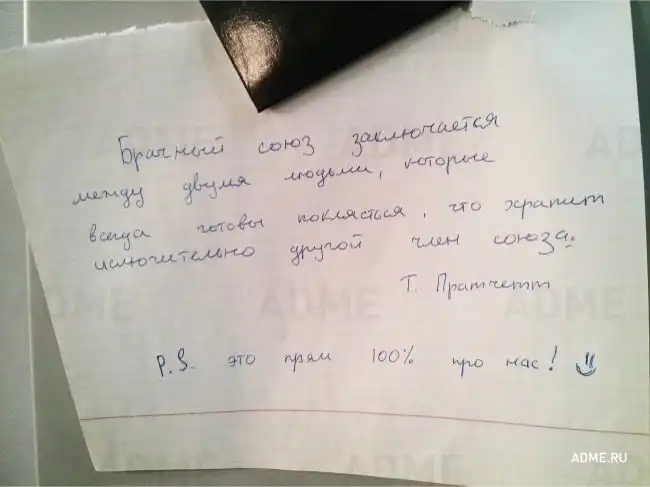 Брачный союз заключается
между двумя людьми, которые
всегда готовы поклясться, что храпит
исключительно другой член союза.
Т. Пратчетт
P.S. это прям 100% про нас!
ADME.RU